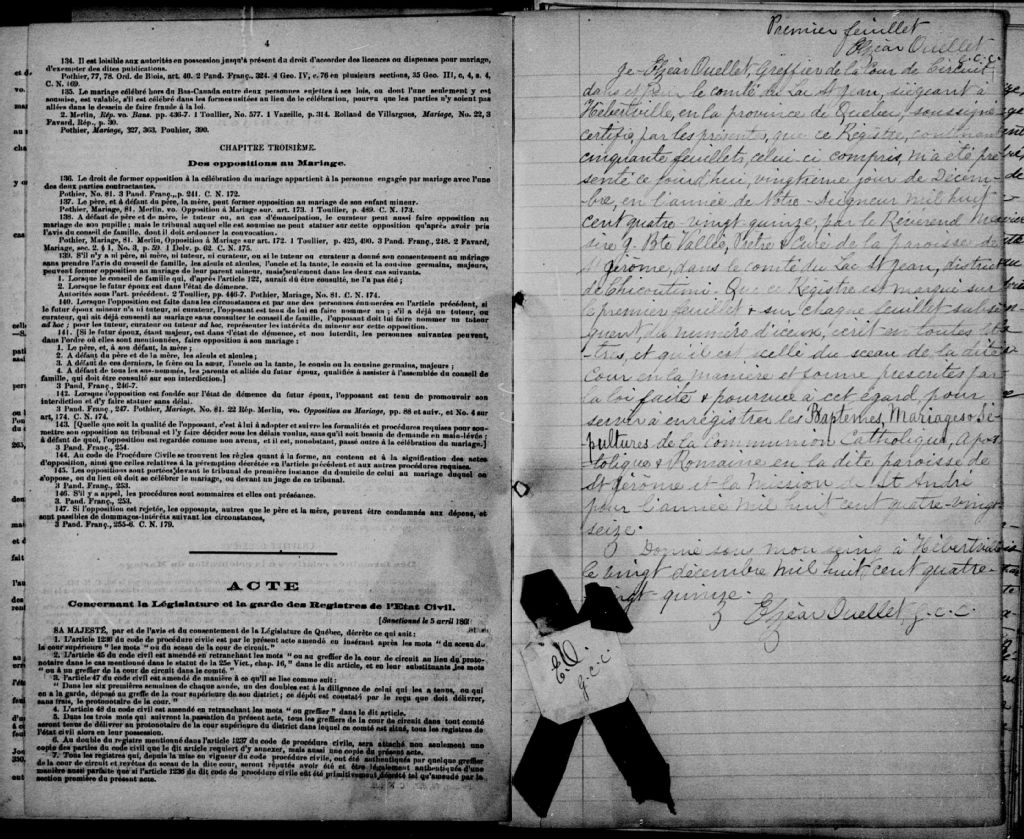 4
134. Il est loisible aux autorités en possession jusqu'à présent du droit d'accorder des licences ou dispenses pour mariage,
d'exempter des dites publications.
Pothier, 77, 78. Ord. de Blois, art. 40. 2 Pand. Franç., 324. 4 Geo. IV, c. 76 en plusieurs sections, 35 Geo. III, c, 4, s. 4,
C. N. 169.
135. Le mariage célébré hors du Bas-Canada entre deux personnes sujettes à ses lois, ou dont l'une seulement y est
soumise, est valable, s'il est célébré dans les formes usitées au lieu de la célébration, pourvu que les parties n'y soient pas
allées dans le dessein de faire fraude à la loi.
2. Merlin, Rép. vo. Bans. pp. 436-7. 1 Toullier, No. 577. 1 Vazeille, p. 314. Rolland de Villargues, Mariage, No. 22, 3
Favard, Rép., p. 30.
Pothier, Mariage, 327, 363. Pouhier, 390.
CHAPITRE TROISIÈME.
Des oppositions au Mariage.
136. Le droit de former opposition à la célébration du mariage appartient à la personne engagée par mariage avec l'une
des deux parties contractantes.
Pothier, No. 81. 3 Pand. Franç., p. 241. C. N. 172.
137. Le père, et à défaut du père, la mère, peut former opposition au mariage de son enfant mineur.
Pothier, Mariage, 81. Merlin, vo. Opposition à Mariage sur. art. 173. 1 Toullier, p. 489. C. N. 173.
138. A défaut de père et de mère, le tuteur ou, au cas d'émancipation, le curateur peut aussi faire opposition au
mariage de son pupille ; mais le tribunal auquel elle est soumise ne peut statuer sur cette opposition qu'après avoir pris
l'avis du conseil de famille, dont il doit ordonner la convocation.
Pothier, Mariage, 81. Merlin, Opposition à Mariage sur art. 172. 1 Toullier, p. 425, 490. 3 Pand. Franç., 248. 2 Favard,
Mariage, sec. 2. § 1, No. 3, p. 59. 1 Delv. p. 62. C. N. 175.
139. S'il n'y a ni père, ni mère, ni tuteur, ni curateur, ou si le tuteur ou curateur a donné son consentement au mariage
sans prendre l'avis du conseil de famille, les aïeuls et aïeules, l'oncle et la tante, le cousin et la cousine germains, majeurs,
peuvent former opposition au mariage de leur parent mineur, mais seulement dans les deux cas suivants.
1. Lorsque le conseil de famille qui, d'après l'article 122, aurait dû être consulté, ne l'a pas été ;
2. Lorsque le futur époux est dans l'état de démence.
Autorités sous l'art. précédent. 2 Toullier, pp. 446-7. Pothier, Mariage, No. 81. C. N. 174.
140. Lorsque l'opposition est faite dans les circonstances et par une des personnes énumérées en l'article précédent, si
le futur époux mineur n'a ni tuteur, ni curateur, l'opposant est tenu de lui en faire nommer un ; s'il a déjà un tuteur, ou
curateur, qui ait déjà consenti au mariage sans consulter le conseil de famille, l'opposant doit lui faire nommer un tuteur
ad hoc ; pour les tuteur, curateur ou tuteur ad hoc, représenter les intérêts du mineur sur cette opposition.
141. [Si le futur époux, étant majeur, est dans l'état de démence, et non interdit, les personnes suivantes peuvent,
dans l'ordre où elles sont mentionnées, faire opposition à son mariage :
1. Le père, et, à son défaut, la mère ;
2. A défaut du père et de la mère, les aïeuls et aïeules ;
3. A défaut de ces derniers, le frère ou la sœur, l'oncle ou la tante, le cousin ou la cousine germains, majeurs ;
4. A défaut de tous les sus-nommés, les parents et alliés du futur époux, qualifiés à assister à l'assemblée du conseil de
famille, qui doit être consulté sur son interdiction.]
3 Pand. Franç., 246-7.
142. Lorsque l'opposition est fondée sur l'état de démence du futur époux, l'opposant est tenu de promouvoir son
interdiction et d'y faire statuer sans délai.
3 Pand. Franç., 247. Pothier, Mariage, No. 81. 22 Rép. Merlin, vo. Opposition au Mariage, pp. 88 et suiv., et No. 4 sur
art, 174. C. N. 174.
143. [Quelle que soit la qualité de l'opposant, c'est à lui à adopter et suivre les formalités et procédures requises pour sou-
mettre son opposition au tribunal et l'y faire décider sous les délais voulus, sans qu'il soit besoin de demande en main-levée ;
à défaut de quoi, l'opposition est regardée comme non avenu, et il est, nonobstant, passé outre à la célébration du mariage.]
3 Pand. Franç., 254.
144. Au code de Procédure Civile se trouvent les règles quant à la forme, au contenu et à la signification des actes
d'opposition, ainsi que celles relatives à la péremption décrétée en l'article précédent et aux autres procédures requises.
145. Les oppositions sont portées devant le tribunal de première instance du domicile de celui au mariage duquel on
s'oppose, ou du lieu où doit se célébrer le mariage, ou devant un juge de ce tribunal.
3 Pand. Franç., 253.
146. S'il y a appel, les procédures sont sommaires et elles ont préséance.
3. Pand. Franç., 253.
147. Si l'opposition est rejetée, les opposants, autres que le père et la mère, peuvent être condamnés aux dépens, et
sont passibles de dommages-intérêts suivant les circonstances,
3 Pand. Franç., 255-6. C. N. 179.
ACTE
Concernant la Législature et la garde des Registres de l'Etat Civil.
[Sanctionné le 5 avril 18
SA MAJESTÉ, par et de l'avis et du consentement de la Législature de Québec, décrète ce qui suit :
1. L'article 1236 du code de procédure civile est par le présent acte amendé en insérant après les mots " du sceau de
la cour supérieure " les mots " ou du sceau de la cour de circuit."
2. L'article 45 du code civil est amendé en retranchant les mots " ou au greffier de la cour de circuit au lieu du proto-
notaire dans le cas mentionné dans le statut de la 25e Vict., chap. 16, " dans le dit article, et en leur substituant les mots
" ou à un greffier de la cour de circuit dans le comté."
3. Particle 47 du code civil est amendé de manière à ce qu'il se lise comme suit :
" Dans les six premières semaines de chaque année, un des doubles est à la diligence de celui qui les a tenus, ou qui
en a la garde, déposé au greffe de la cour supérieure de son district ; ce dépôt est constaté par le reçu que doit délivrer,
sans frais, le protonotaire de la cour."
4. L'article 48 du code civil est amendé en retranchant les mots " ou greffier " dans le dit article.
5. Dans les trois mois qui suivront la passation du présent acte, tous les greffiers de la cour de circuit dans tout comté
seront tenus de délivrer au protonotaire de la cour supérieure du district dans lequel ce comté est situé, tous les registres de
l'état civil alors en leur possession.
6. Au double du registre mentionné dans l'article 1237 du code de procédure civile, sera attaché non seulement une
copie des parties du code civil que le dit article requiert d'y annexer, mais aussi une copie du présent acte.
7. Tous les registres qui, depuis la mise en vigueur du code procédure civile, ont été authentiqués par quelque greffier
de la cour de circuit et revêtus du sceau de la dite cour, seront réputés avoir été et être légalement authentiqués d'une
manière aussi parfaite que si l'article 1236 du dit code de procédure civile eût été primitivement décrété tel qu'amendé par la
section première du présent acte.
Premier feuillet
Elzéar Ouellet
g.c.c.
Je Elzéar Ouellet, Greffier de la Cour de Circuit
dans et pour le comté du Lac St Jean, siégeant à
Hébertville, en la province de Québec, soussigné
certifie, par les présentes, que ce Registre, contenant
cinquante feuillets, celui ci compris, m'a été pré
senté ce jourd'hui, vingtième jour de Décem-
bre, en l'année de Notre-Seigneur mil huit
cent quatre vingt quinze, par le Révérend Messire
J. Bte Vallée, Prêtre & Curé de la paroisse de
St Jérôme, dans le comté du Lac St Jean, district
de Chicoutimi. Que ce Registre est marqué sur
le premier feuillet & sur chaque feuillet subsé
quent, du numéro d'iceux, écrit en toutes let-
tres, et qu'il est scellé du sceau de la dite
Cour en la manière et forme prescrites par
la loi faite & pourvue à cet égard, pour
servir à enregistrer les Baptêmes, Mariages & Sé-
pultures de la Communion Catholique, Apos-
tolique & Romaine en la dite paroisse de
St Jérôme et la Mission de St André
pour l'année mil huit cent quatre-vingt
seize.
Donné sous mon seing à Hébertville
le vingt décembre mil huit cent quatre-
vingt quinze.
Elzéar Ouellet, g.c.c.
E.O.
g.c.c.